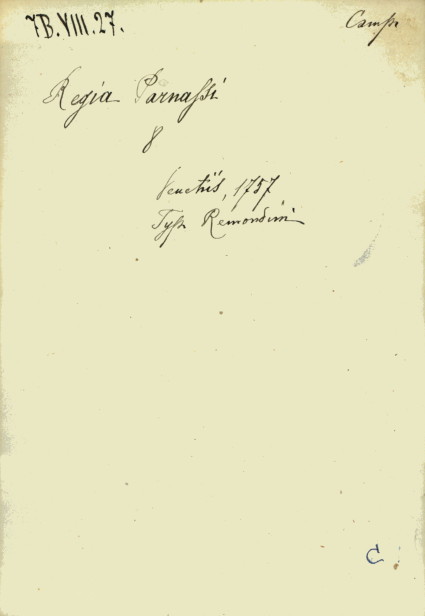 7B.VIII.27.
Camp.
Regia Parnassi
8
Venetiis, 1757
Typ. Remondini
C